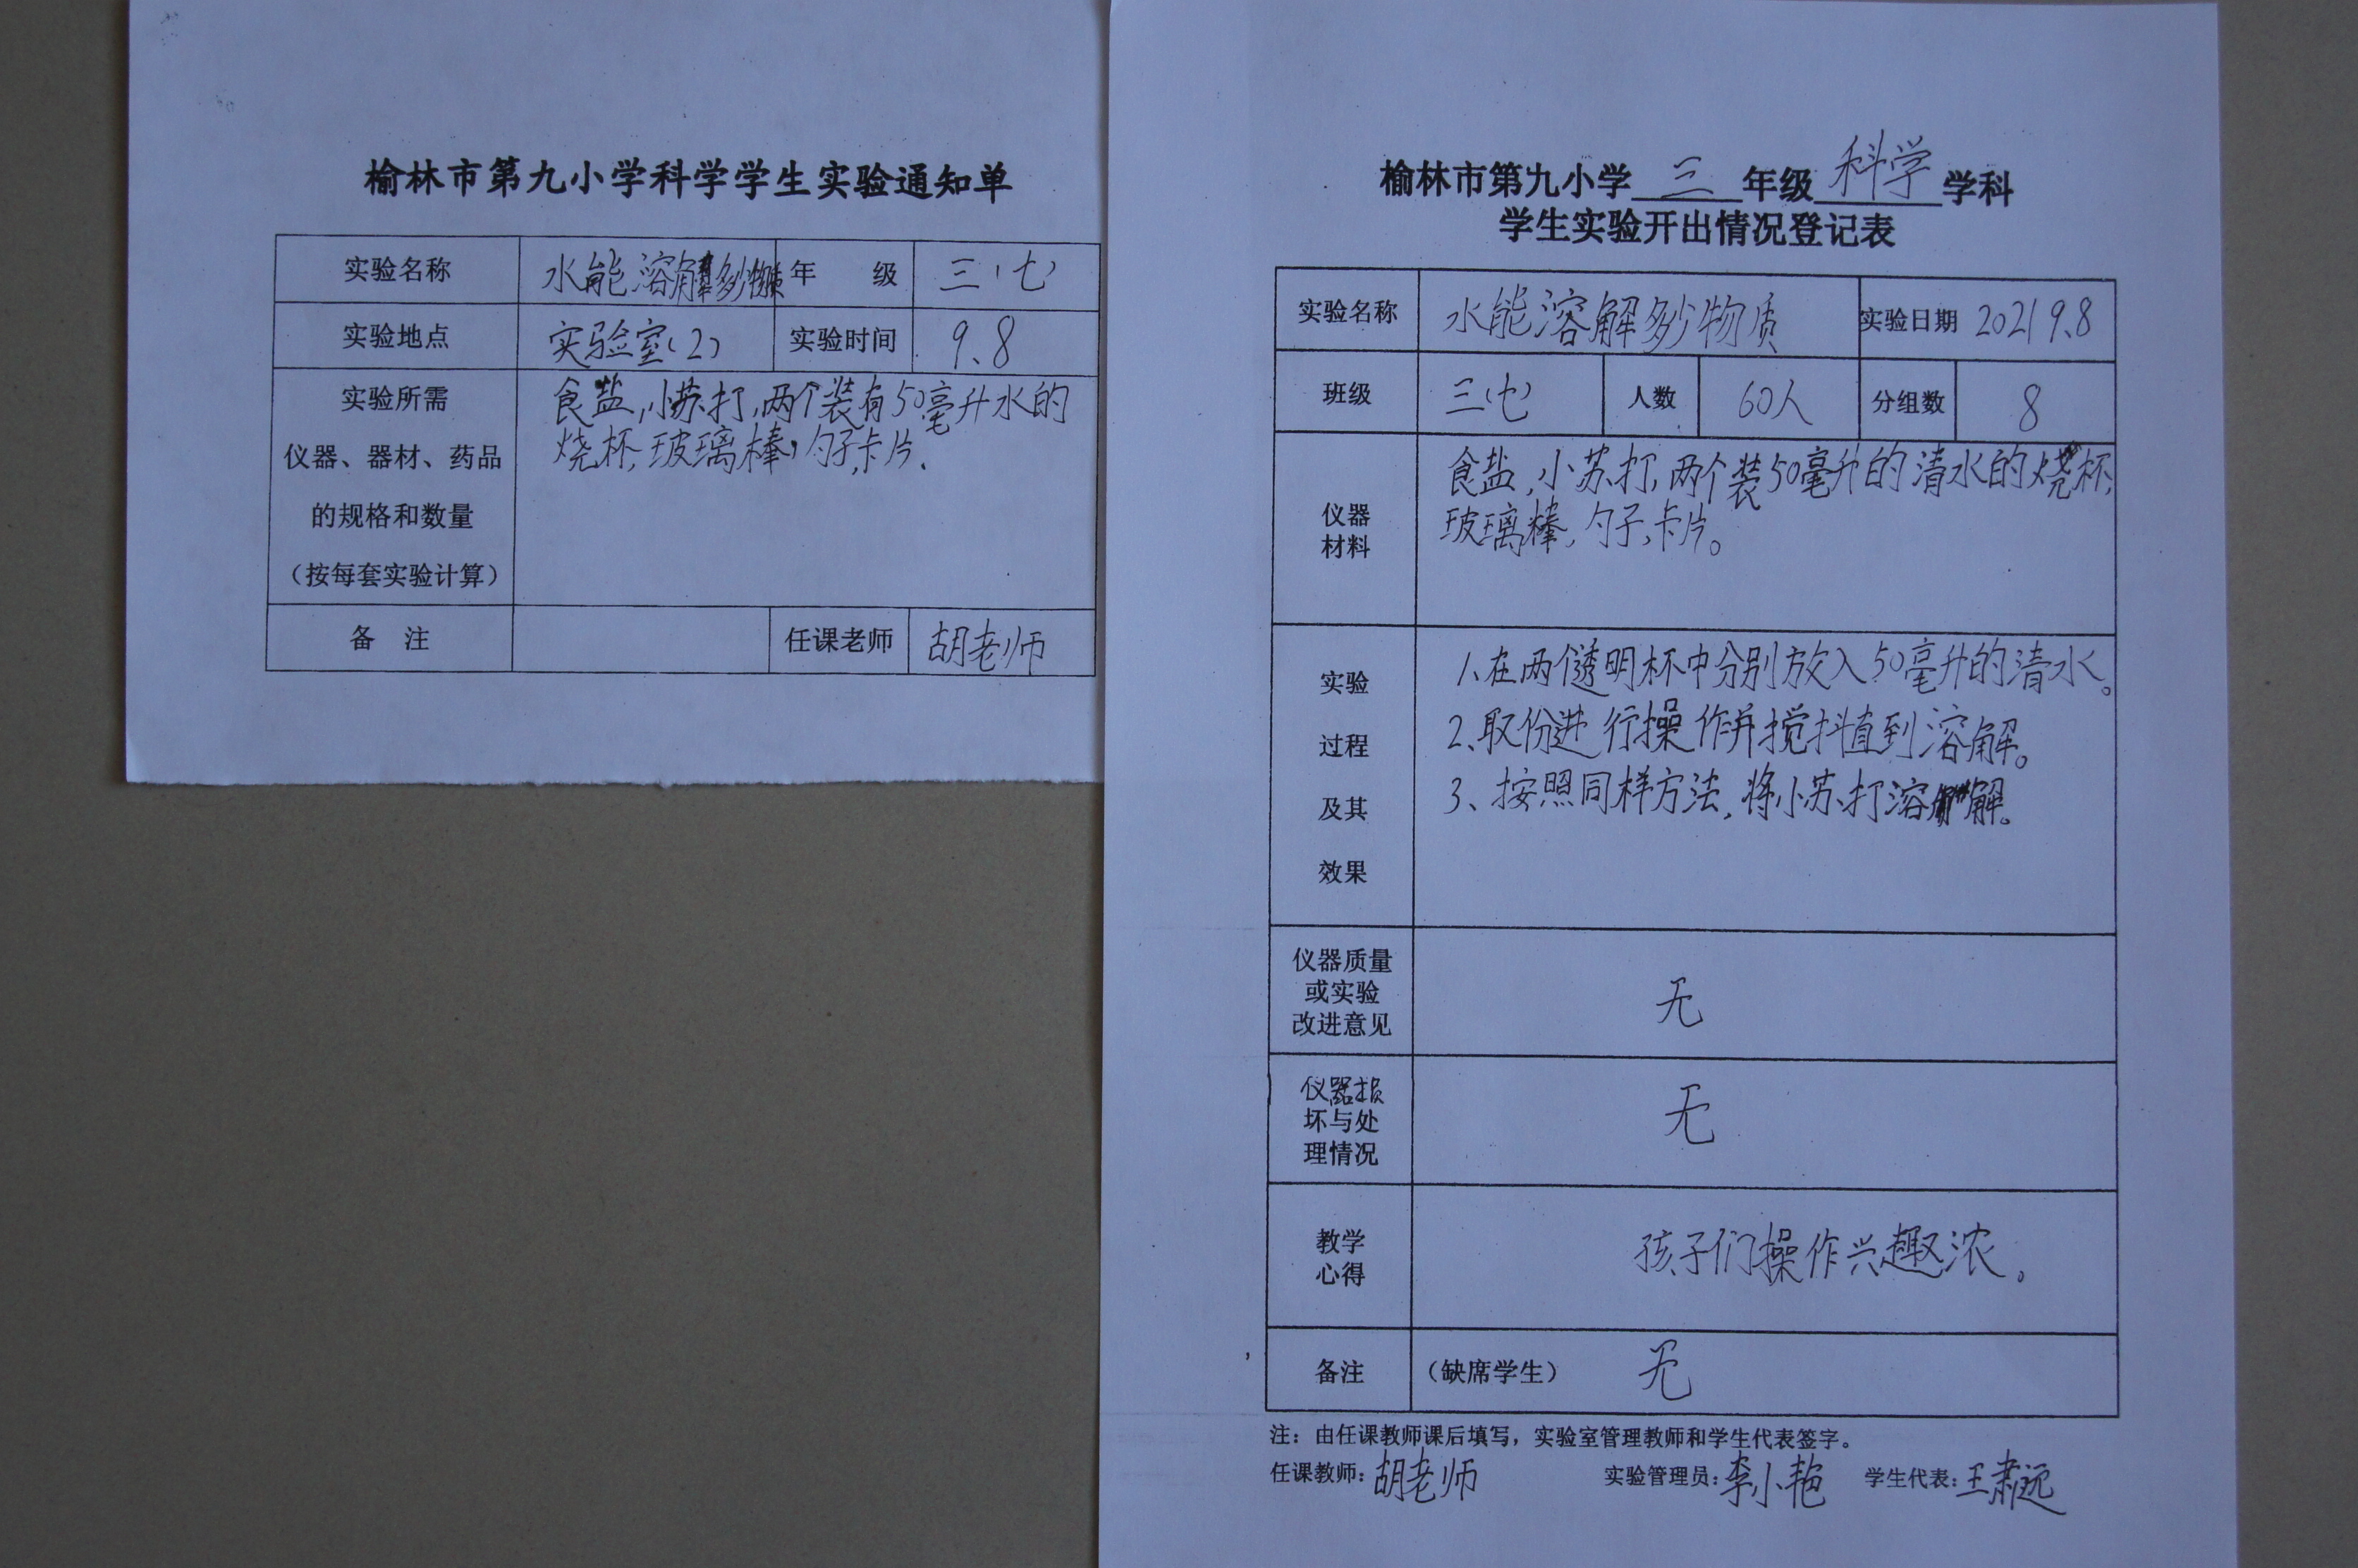 榆林市第九小学科学学生实验通知单
实验名称 水能溶解多少物质 年 级 三(七)
实验地点 实验室(2) 实验时间 9.8
实验所需
仪器、器材、药品
的规格和数量
(按每套实验计算)
食盐,小苏打,两个装有50毫升水的
烧杯,玻璃棒,勺子,卡片.
备 注 任课老师 胡老师
榆林市第九小学 三 年级 科学 学科
学生实验开出情况登记表
实验名称 水能溶解多少物质 实验日期 2021 9.8
班级 三(七) 人数 60人 分组数 8
仪器
材料
食盐,小苏打,两个装50毫升的清水的烧杯,
玻璃棒,勺子,卡片。
实验
过程
及其
效果
1、在两个透明杯中分别放入50毫升的清水。
2、取份进行操作并搅拌直到溶解。
3、按照同样方法,将小苏打溶解。
仪器质量
或实验
改进意见
无
仪器损
坏与处
理情况
无
教学
心得
孩子们操作兴趣浓。
备注 (缺席学生) 无
注:由任课教师课后填写,实验室管理教师和学生代表签字。
任课教师:胡老师 实验管理员:李小艳 学生代表:王肃远